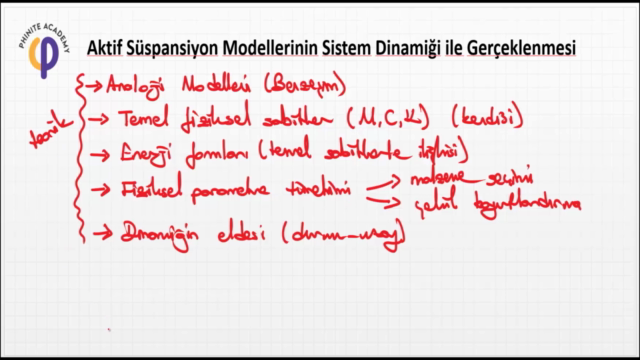 PHINITE ACADEMY
Aktif Süspansiyon Modellerinin Sistem Dinamiği ile Gerçeklenmesi
teorik
→ Analoji Modelleri (Benzeşim)
→ Temel fiziksel sabitler (M, C, K) (kendisi)
→ Enerji formları (temel sabitlerle ilişkisi)
→ Fiziksel parametre türetimi → malzeme seçimi
→ şekil boyutlandırma
→ Dinamiğin eldesi (durum-uzay)